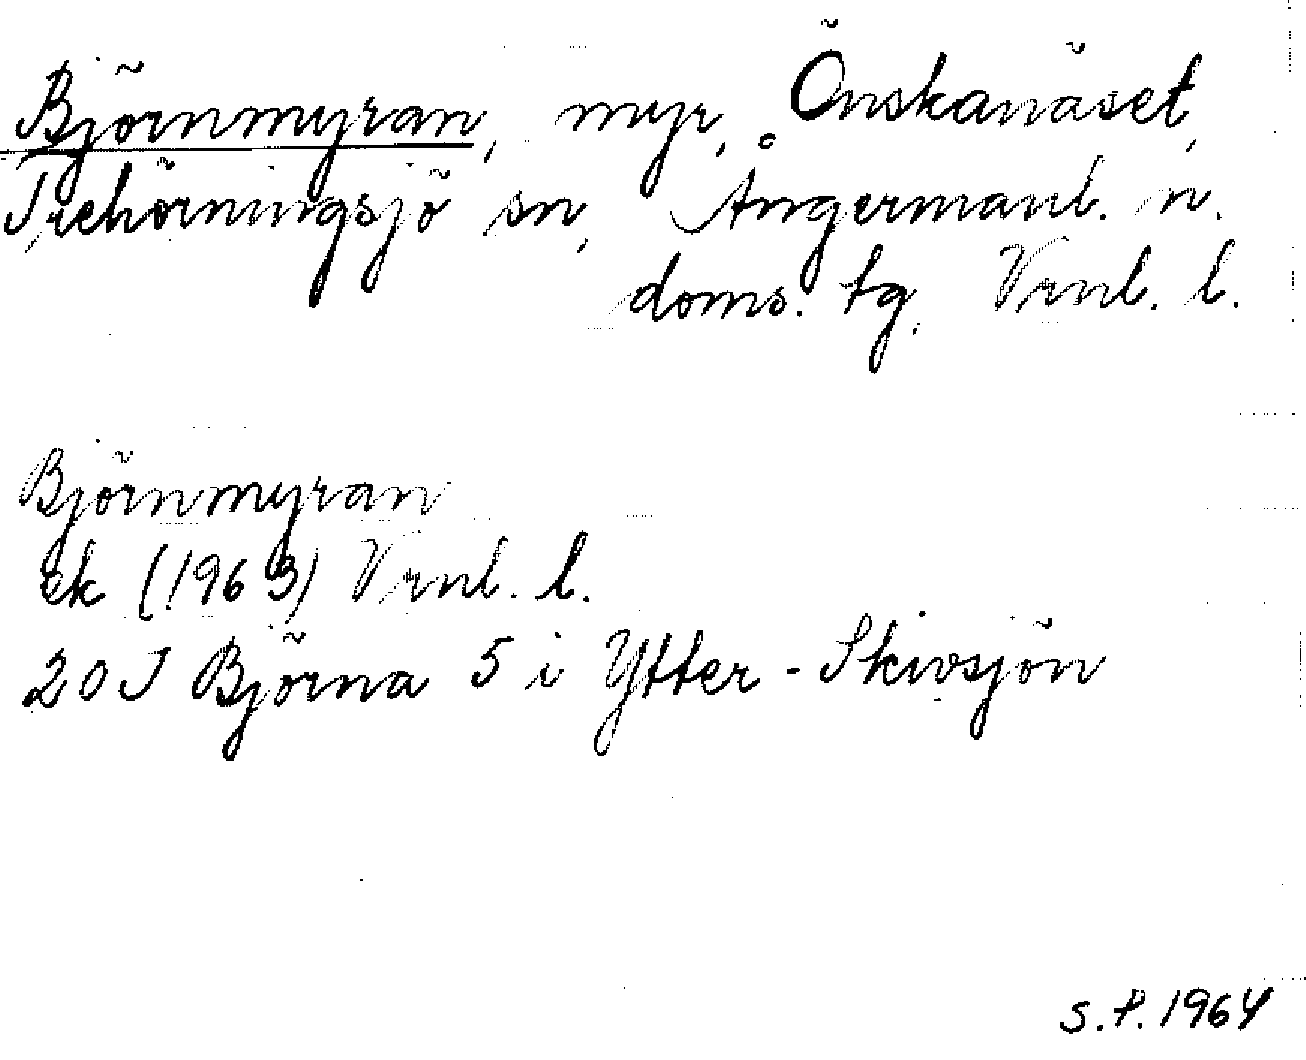 Björnmyran, myr, Önskanäset,
Trehörningsjö sn, Ångermanl. n.
doms. tg. Vrnl. l.
Björnmyran
ek (1963) Vrnl. l.
20 J Björna 5 i Ytter-Skivsjön
S.P. 1964